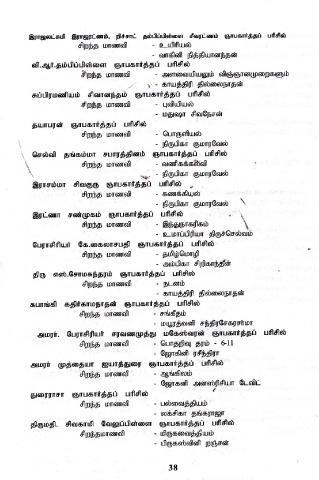 இராஜலட்சுமி இராஜரட்ணம், நிச்சாட் தம்பிப்பிள்ளை சிவரட்ணம் ஞாபகார்த்தப் பரிசில்
சிறந்த மாணவி - உயிரியல்
- வாகினி நித்தியானந்தன்
வி.ஆர்.தம்பிப்பிள்ளை ஞாபகார்த்தப் பரிசில்
சிறந்த மாணவி - அளவையியலும் விஞ்ஞானமுறைகளும்
- காயத்திரி தில்லைநாதன்
சுப்பிரமணியம் சிவானந்தம் ஞாபகார்த்தப் பரிசில்
சிறந்த மாணவி - புவியியல்
- மதுஷா சிவநேசன்
தயாபரன் ஞாபகார்த்தப் பரிசில்
சிறந்த மாணவி - பொருளியல்
- நிருபிகா குமாரவேல்
செல்வி தங்கம்மா சபாரத்தினம் ஞாபகார்த்தப் பரிசில்
சிறந்த மாணவி - வணிகக்கல்வி
- நிருபிகா குமாரவேல்
இராசம்மா சிவகுரு ஞாபகார்த்தப் பரிசில்
சிறந்த மாணவி - கணக்கியல்
- நிருபிகா குமாரவேல்
இரட்ணா சண்முகம் ஞாபகார்த்தப் பரிசில்
சிறந்த மாணவி - இந்துநாகரிகம்
- உமாப்பிரியா திருச்செல்வம்
பேராசிரியர் கே.கைலாசபதி ஞாபகார்த்தப் பரிசில்
சிறந்த மாணவி - தமிழ்மொழி
- அம்பிகா சிறிகாந்தீன்
திரு எஸ்.சோமசுந்தரம் ஞாபகார்த்தப் பரிசில்
சிறந்த மாணவி - நடனம்
- காயத்திரி தில்லைநாதன்
சுபாங்கி கதிர்காமநாதன் ஞாபகார்த்தப் பரிசில்
சிறந்த மாணவி - சங்கீதம்
- மயூரத்வனி சந்திரசேகரசர்மா
அமரர். பேராசிரியர் சரவணமுத்து மகேஸ்வரன் ஞாபகார்த்தப் பரிசில்
சிறந்த மாணவி - பொதுஅறிவு தரம் - 6-11
- ஜோகினி ரசீந்திரா
அமரர் முத்தையா ஐயாத்துரை ஞாபகார்த்தப் பரிசில்
சிறந்த மாணவி - ஆங்கிலம்
- ஜோகனி அனஸ்ரிசியா டேவிட்
துரைராசா ஞாபகார்த்தப் பரிசில்
சிறந்த மாணவி - பல்வைத்தியம்
- லக்சிகா தங்கராஜா
திருமதி. சிவகாமி வேலுப்பிள்ளை ஞாபகார்த்தப் பரிசில்
சிறந்தமாணவி - மிருகவைத்தியம்
- பிருகஸ்வினி றஞ்சன்
38